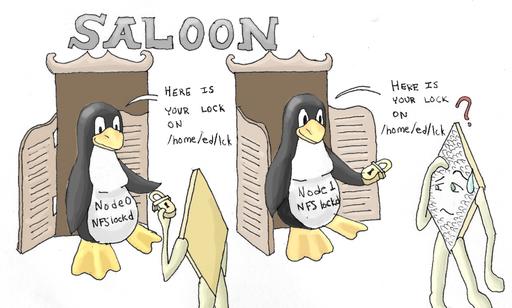 SALOON
HERE IS
YOUR LOCK
ON
/home/ed/lck
Node0
NFS lockd
HERE IS
YOUR LOCK
ON
/home/ed/lck
?
Node1
NFS lockd